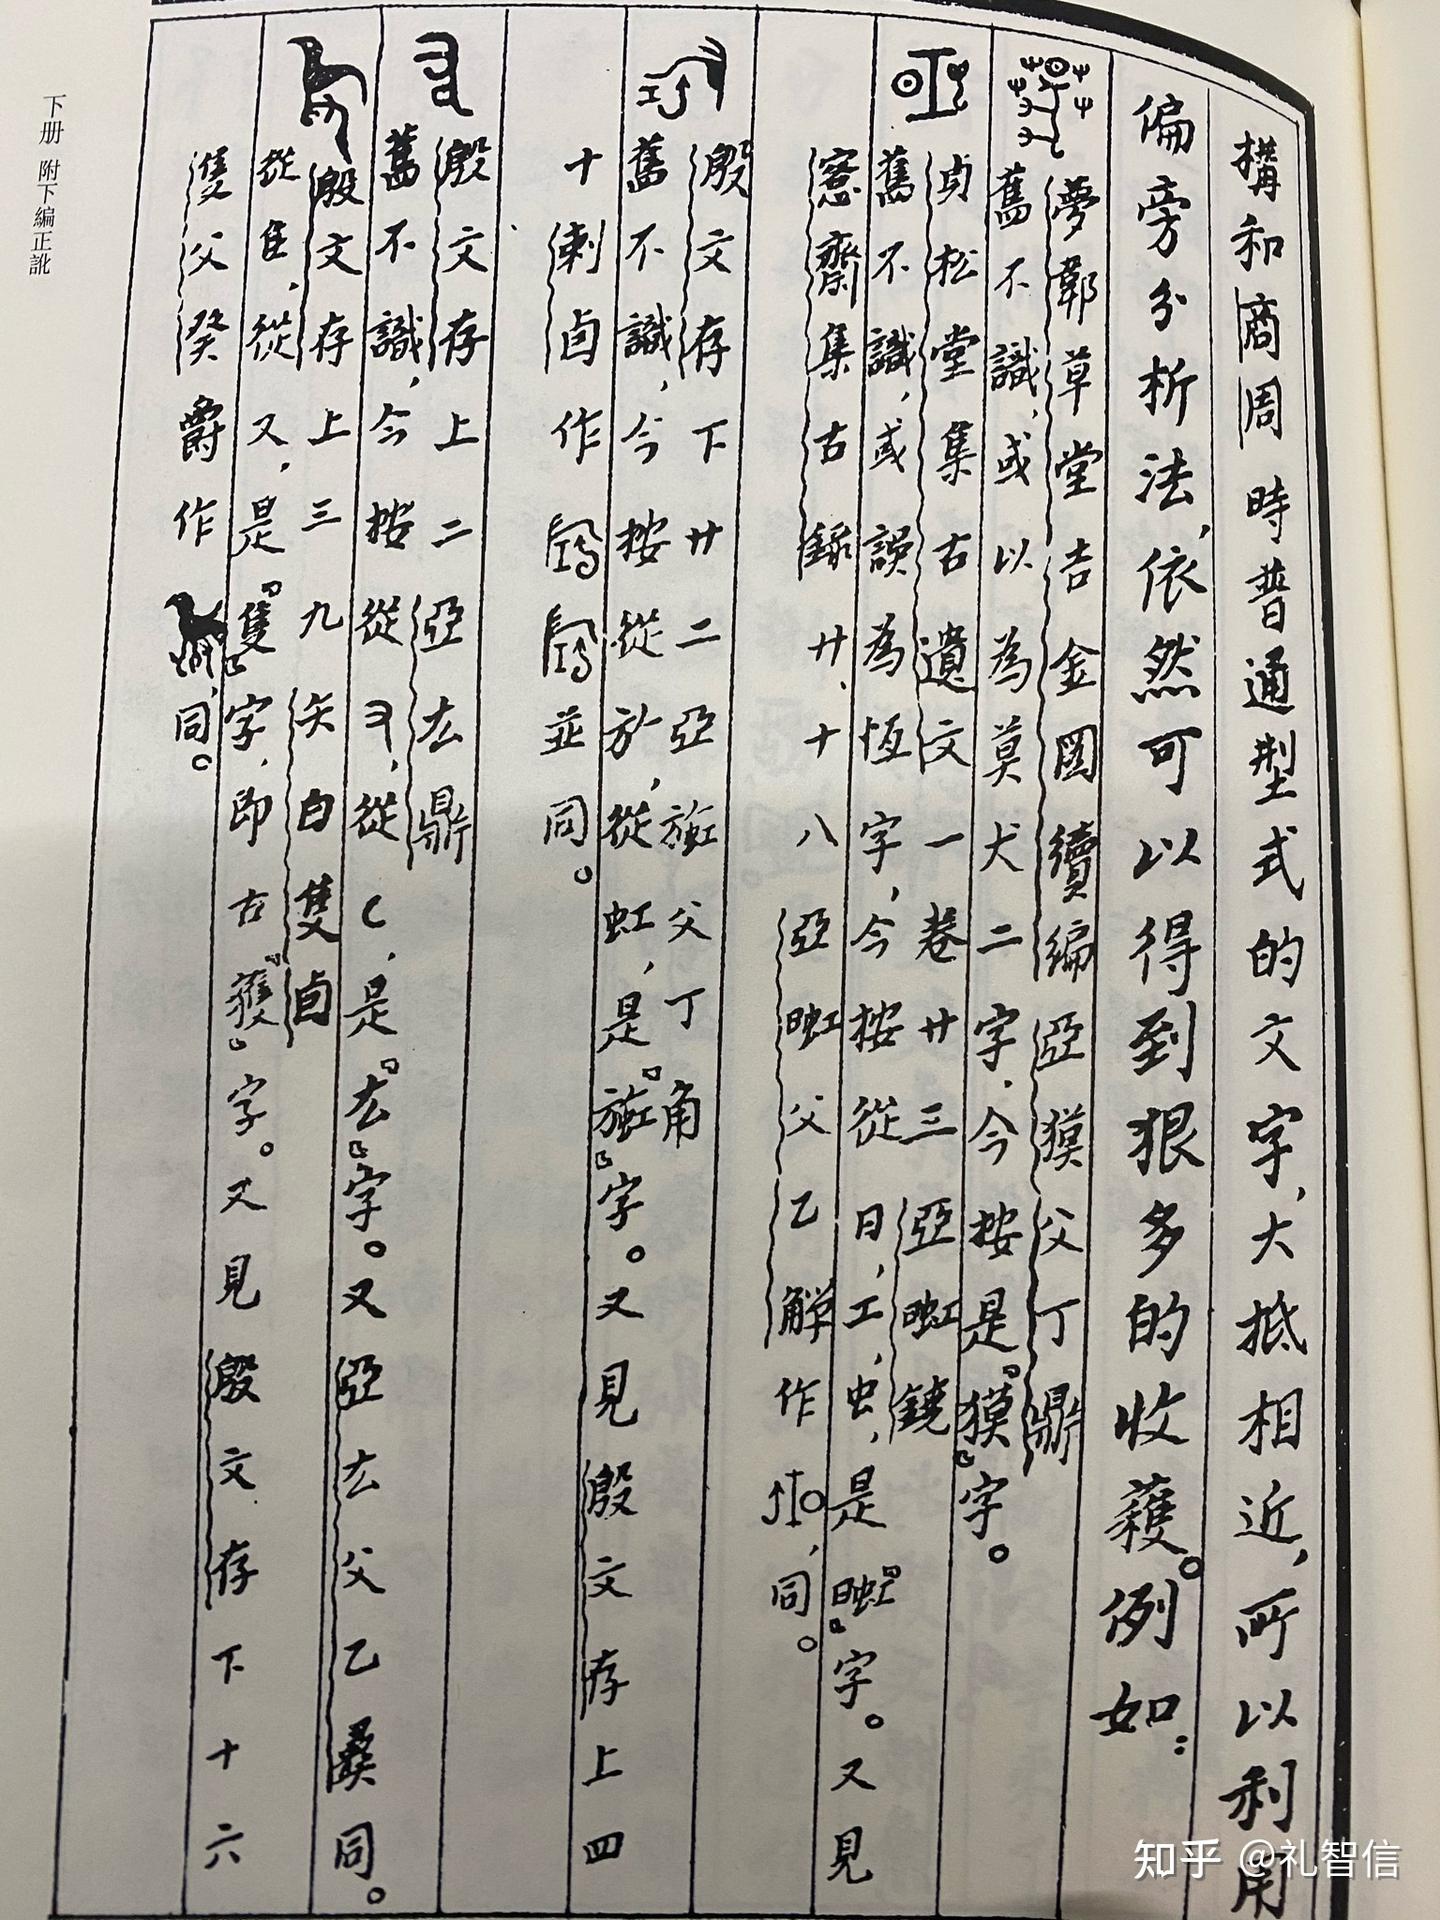 構和商周時普通型式的文字,大抵相近,所以利用
偏旁分析法,依然可以得到狠多的收穫。例如:
夢鄣草堂吉金圖續編亞獏父丁鼎
舊不識,或以為莫犬二字.今按是『獏』字。
貞松堂集古遺文一卷廿三亞䖝鐃
舊不識,或誤為恆字,今按從日,工,虫,是『』字。又見
愙齋集古錄廿、十八亞父乙觶作,同。
殷文存下廿二亞父丁角
舊不識,今按從㫃,從虹,是『』字。又見殷文存上四
十剌卣作並同。
殷文存上二亞厷鼎
舊不識,今按從ヨ,從,是『厷』字。又亞厷父乙彝同。
殷文存上三九矢白隻卣
從隹,從又,是『隻』字,即古『獲』字。又見殷文存下十六
隻父癸爵作,同。
下冊 附下編正訛
知乎 @礼智信